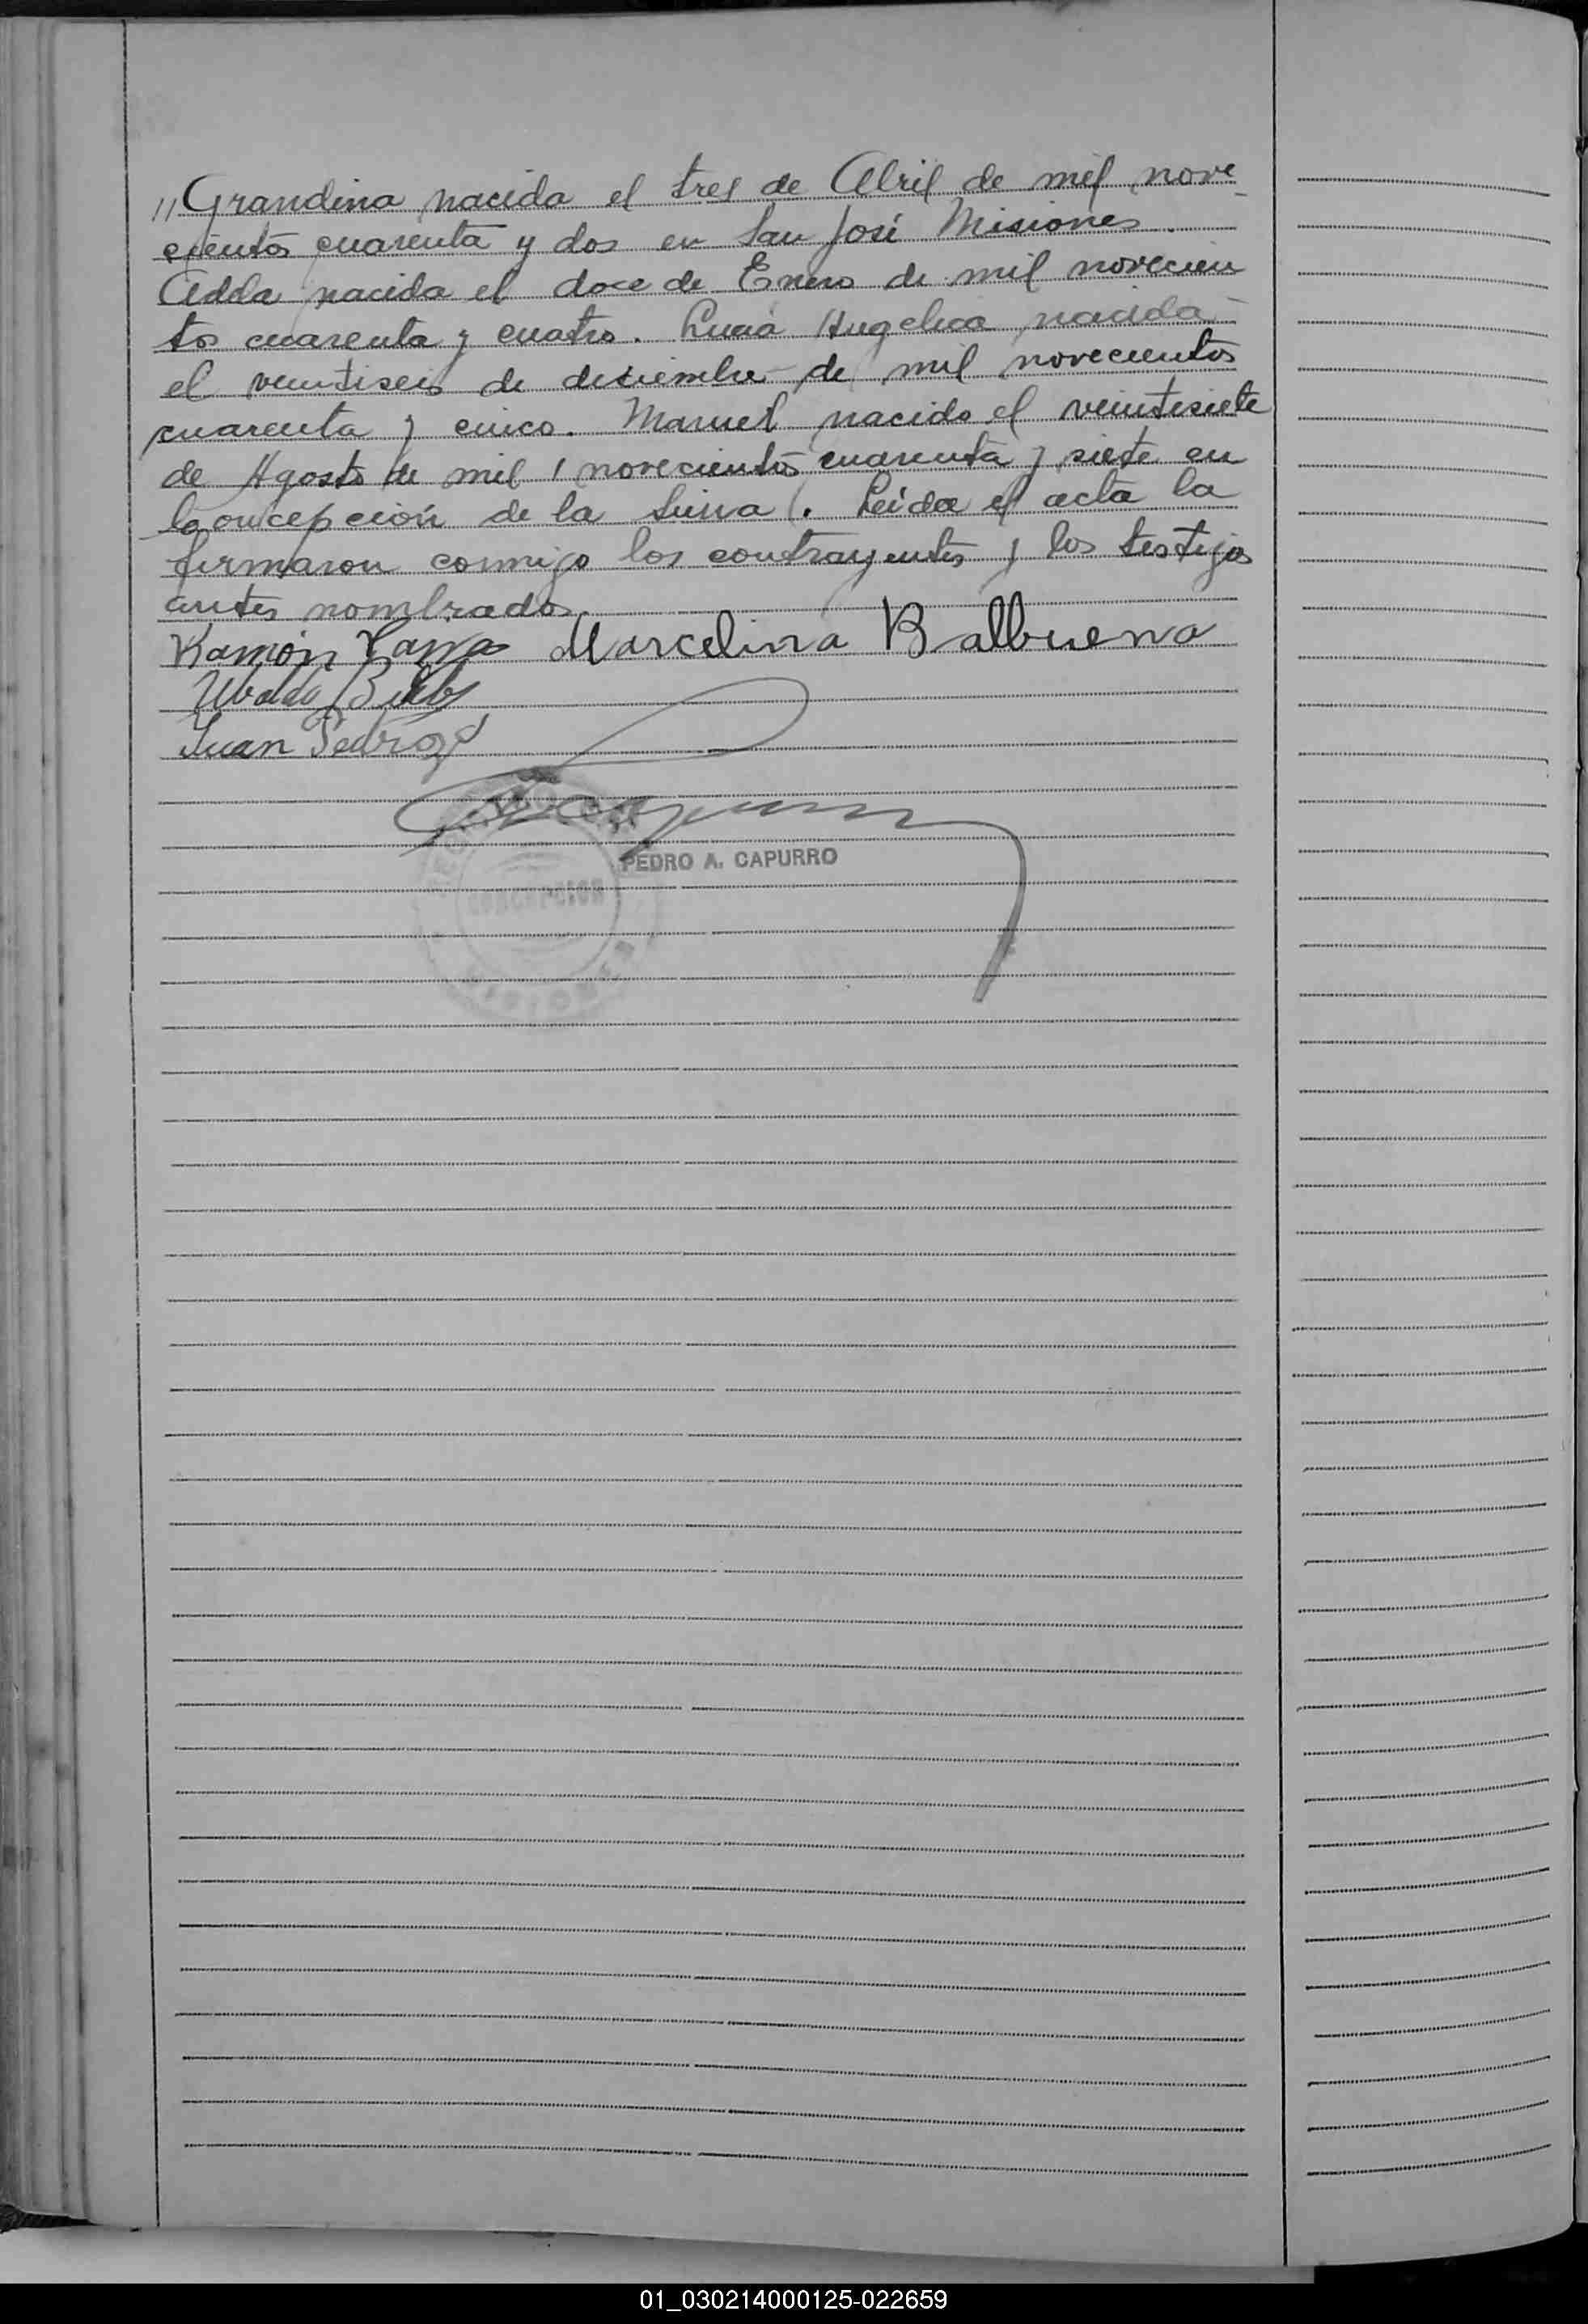 " Grandina nacida el tres de Abril de mil nove
cientos cuarenta y dos en San José Misiones.
Adda nacida el doce de Enero de mil novecien
tos cuarenta y cuatro. Lucia Angelica nacida
el veintiseis de diciembre de mil novecientos
cuarenta y cinco. Manuel nacido el veintisiete
de Agosto de mil novecientos cuarenta y siete en
Concepción de la Sierra. Leída el acta la
firmaron conmigo los contrayentes y los testigos
antes nombrados.
Ramón Marcelina Balbuena
Ubaldo
Juan Pedrozo
PEDRO A. CAPURRO
CONCEPCION
MISIONES
01_030214000125-022659